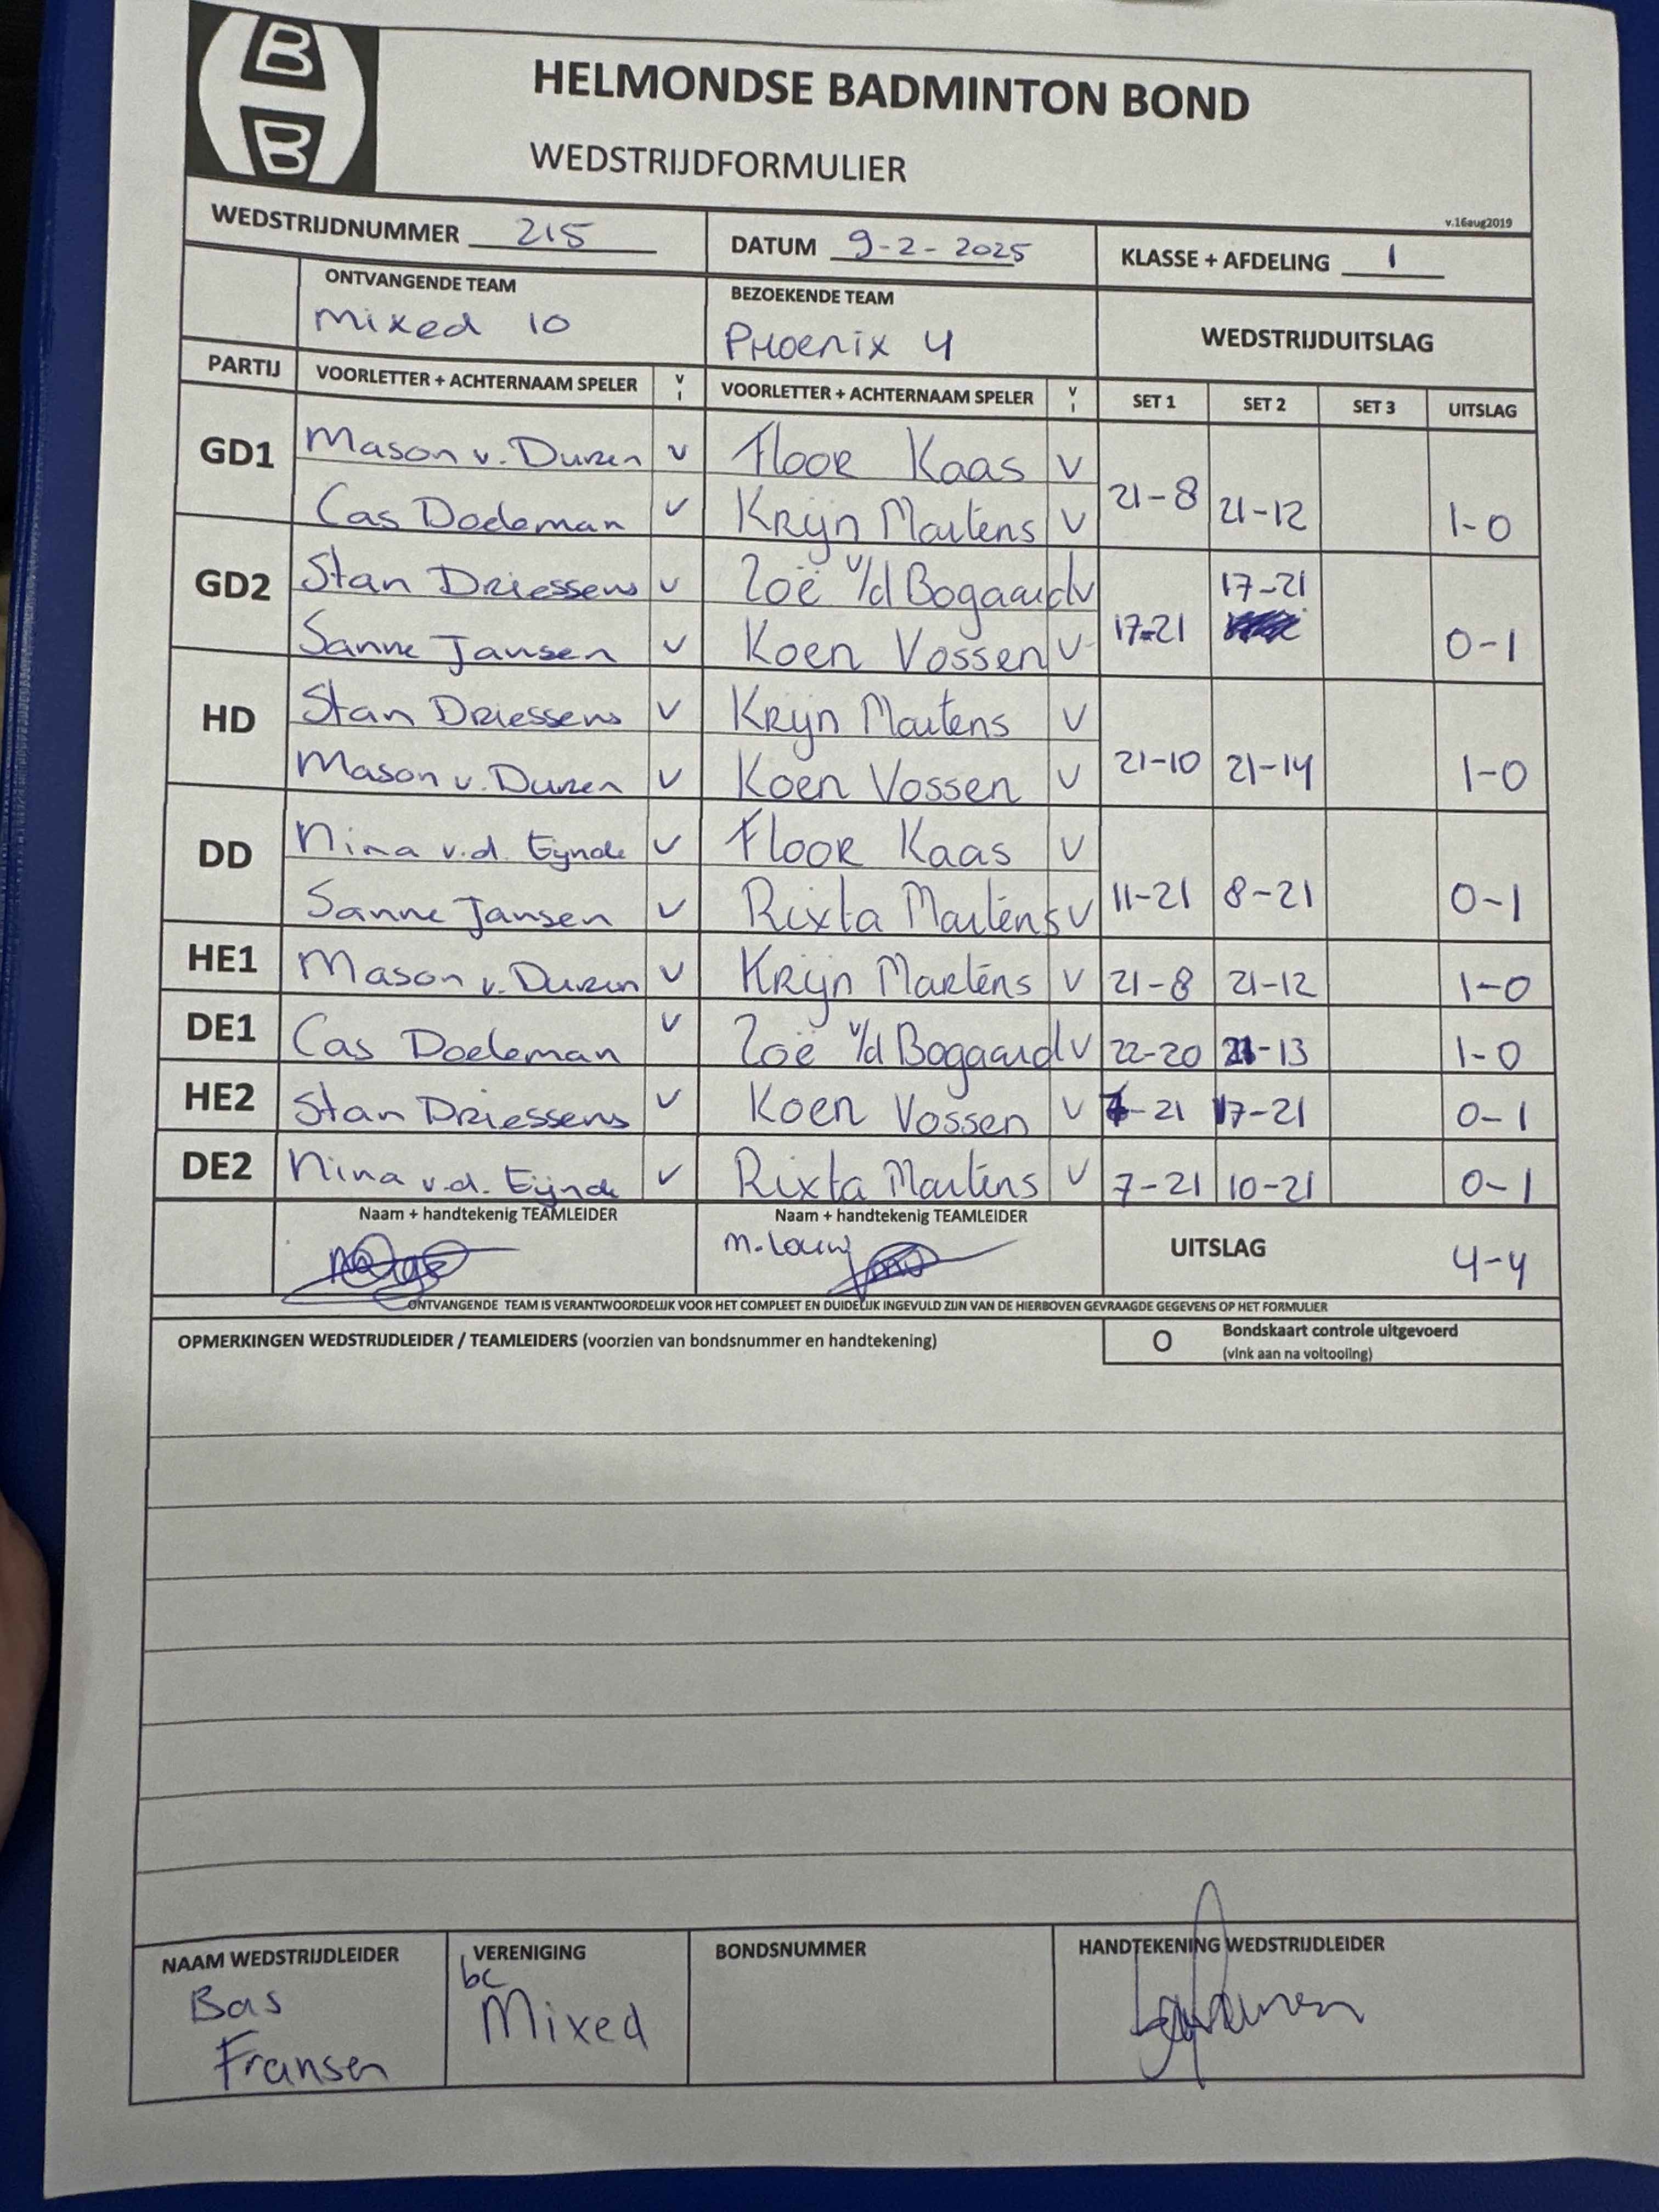 B
B
HELMONDSE BADMINTON BOND
WEDSTRIJDFORMULIER
v.16aug2019
WEDSTRIJDNUMMER 215 DATUM 9-2-2025 KLASSE + AFDELING 1
ONTVANGENDE TEAM BEZOEKENDE TEAM WEDSTRIJDUITSLAG
Mixed 10 PHoenix 4
PARTIJ VOORLETTER + ACHTERNAAM SPELER V I VOORLETTER + ACHTERNAAM SPELER V I SET 1 SET 2 SET 3 UITSLAG
GD1 Mason v. Duren v Floor Kaas v 21-8 21-12 1-0
Cas Doeleman v Krijn Martens v
GD2 Stan Driessens v Zoë v/d Bogaard v 17-21 17-21 0-1
Sanne Jansen v Koen Vossen v
HD Stan Driessens v Krijn Martens v 21-10 21-14 1-0
Mason v. Duren v Koen Vossen v
DD Nina v.d. Eijnde v Floor Kaas v 11-21 8-21 0-1
Sanne Jansen v Rixta Martens v
HE1 Mason v. Duren v Krijn Martens v 21-8 21-12 1-0
DE1 Cas Doeleman v Zoë v/d Bogaard v 22-20 21-13 1-0
HE2 Stan Driessens v Koen Vossen v -21 17-21 0-1
DE2 Nina v.d. Eijnde v Rixta Martens v 7-21 10-21 0-1
Naam + handtekenig TEAMLEIDER Naam + handtekenig TEAMLEIDER UITSLAG 4-4
M. Louw
ONTVANGENDE TEAM IS VERANTWOORDELIJK VOOR HET COMPLEET EN DUIDELIJK INGEVULD ZIJN VAN DE HIERBOVEN GEVRAAGDE GEGEVENS OP HET FORMULIER
OPMERKINGEN WEDSTRIJDLEIDER / TEAMLEIDERS (voorzien van bondsnummer en handtekening) O Bondskaart controle uitgevoerd
(vink aan na voltooiing)
NAAM WEDSTRIJDLEIDER VERENIGING BONDSNUMMER HANDTEKENING WEDSTRIJDLEIDER
Bas bc
Fransen Mixed